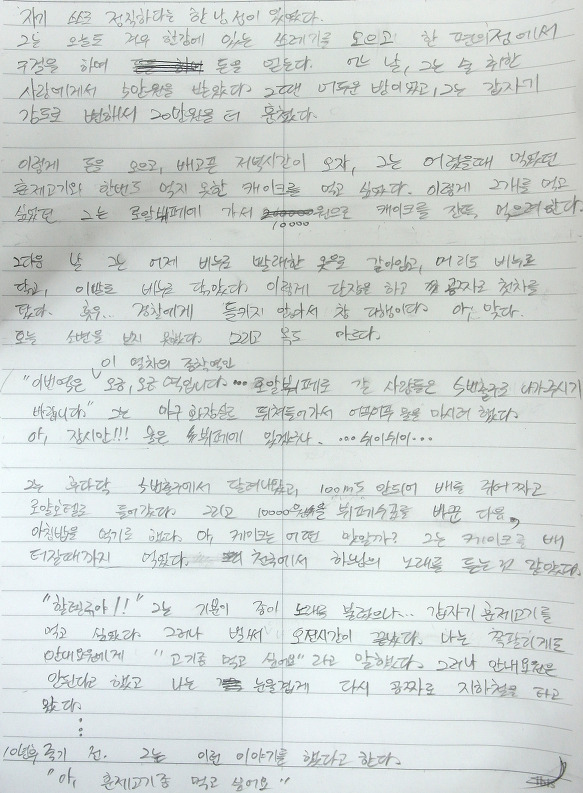 자기 스스로 정직하다는 한 남성이 있었다.
그는 오늘도 겨우 현장에 있는 쓰레기를 모으고 한 편의점에서
구걸을 하며 돈을 얻는다. 어느 날, 그는 술 취한
사람에게서 5만원을 받았다. 그때 어두운 밤이었고, 그는 갑자기
강도로 변해서 20만원을 더 훔쳤다.
이렇게 돈을 모으고, 배고픈 저녁시간이 오자, 그는 어렸을때 먹었던
훈제고기와 한번도 먹지 못한 케이크를 먹고 싶었다. 이렇게 2개를 먹고
싶었던 그는 로얄뷔페에 가서 10000원으로 케이크를 잔뜩 먹으려 한다.
그다음 날 그는 어제 비누로 빨래한 옷으로 갈아입고, 머리도 비누로
닦고, 이빨도 비누로 닦았다. 이렇게 단장을 하고 공짜로 전차를
탔다. 휴우.. 경찰에게 들키지 않아서 참 다행이다. 아, 맞다.
오늘 소변을 보지 못했다. 그리고 목도 마르다.
"이번역은 이 열차의 종착역인 오공, 오공 역입니다. ... 로얄뷔페로 갈 사람들은 5번출구로 나가주시기
바랍니다." 그는 마구 화장실로 뛰쳐들어가서 어푸어푸 물을 마시려 했다.
아, 잠시만!!! 물은 뷔페에 있겠구나. ... 쉬이쉬이...
그는 후다닥 5번출구에서 달려나왔고, 100m도 안되어 배를 쥐어짜고
로얄호텔로 들어갔다. 그리고 10000원을 뷔페쿠폰로 바꾼 다음,
아침밥을 먹기로 했다. 아, 케이크는 어떤 맛일까? 그는 케이크로 배
터질때까지 먹었다. 천국에서 하느님의 노래를 듣는것 같았다.
"할렐루야!!" 그는 기분이 좋아 노래를 불렀으나... 갑자기 훈제고기를
먹고 싶었다. 그러나 벌써 오전시간이 끝났다. 나는 쪽팔리게도
안내요원에게 "고기좀 먹고 싶어요" 라고 말했다. 그러나 안내요원은
안된다고 했고 나는 눈물겹게 다시 공짜로 지하철을 타고
왔다.
⋮
10년후 죽기 전. 그는 이런 이야기를 했다고 한다.
"아, 훈제고기좀 먹고 싶어요"